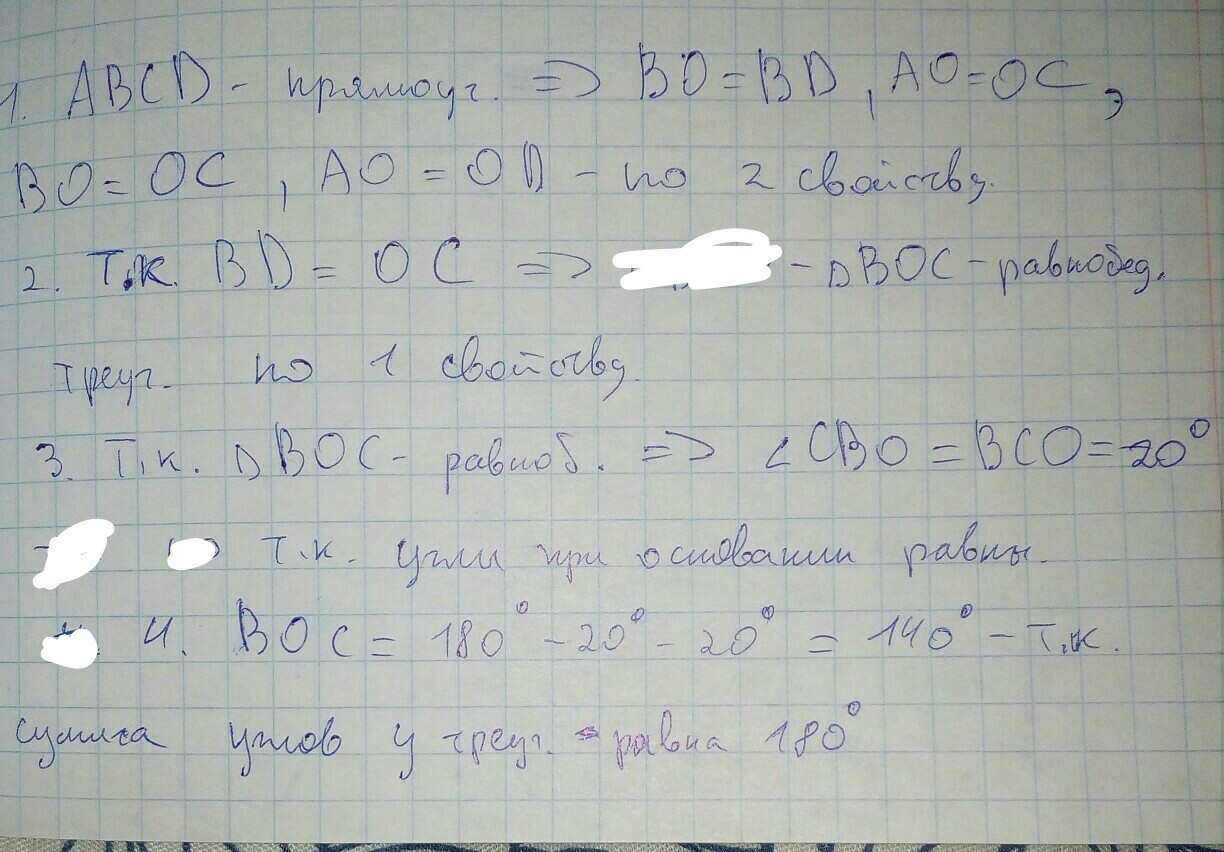 1. ABCD - прямоуг. => BO = BD, AO=OC,
BO = OC, AO = OD - по 2 свойству.
2. Т.к. BD = OC => - ΔBOC - равнобед.
треуг. по 1 свойству.
3. Т.к. ΔBOC - равноб. => ∠CBO = BCO = 20°
т.к. углы при основании равны.
4. BOC = 180° - 20° - 20° = 140° - т.к.
сумма углов у треуг. равна 180°